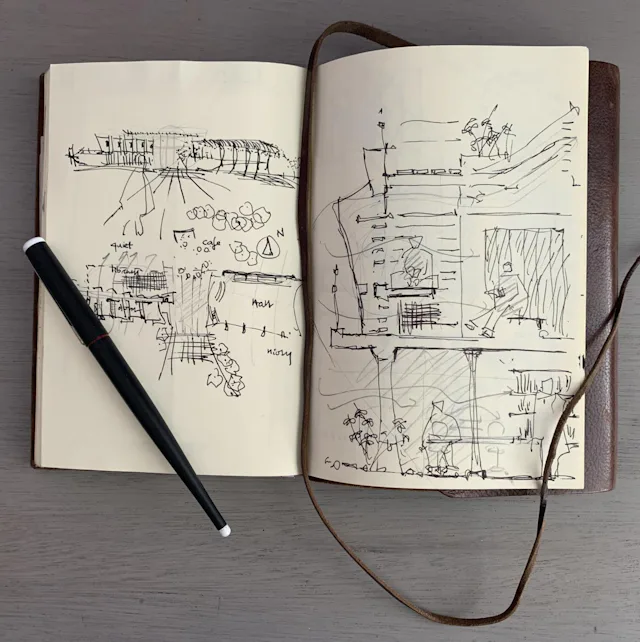 quiet
cafe
N
Hall
noisy